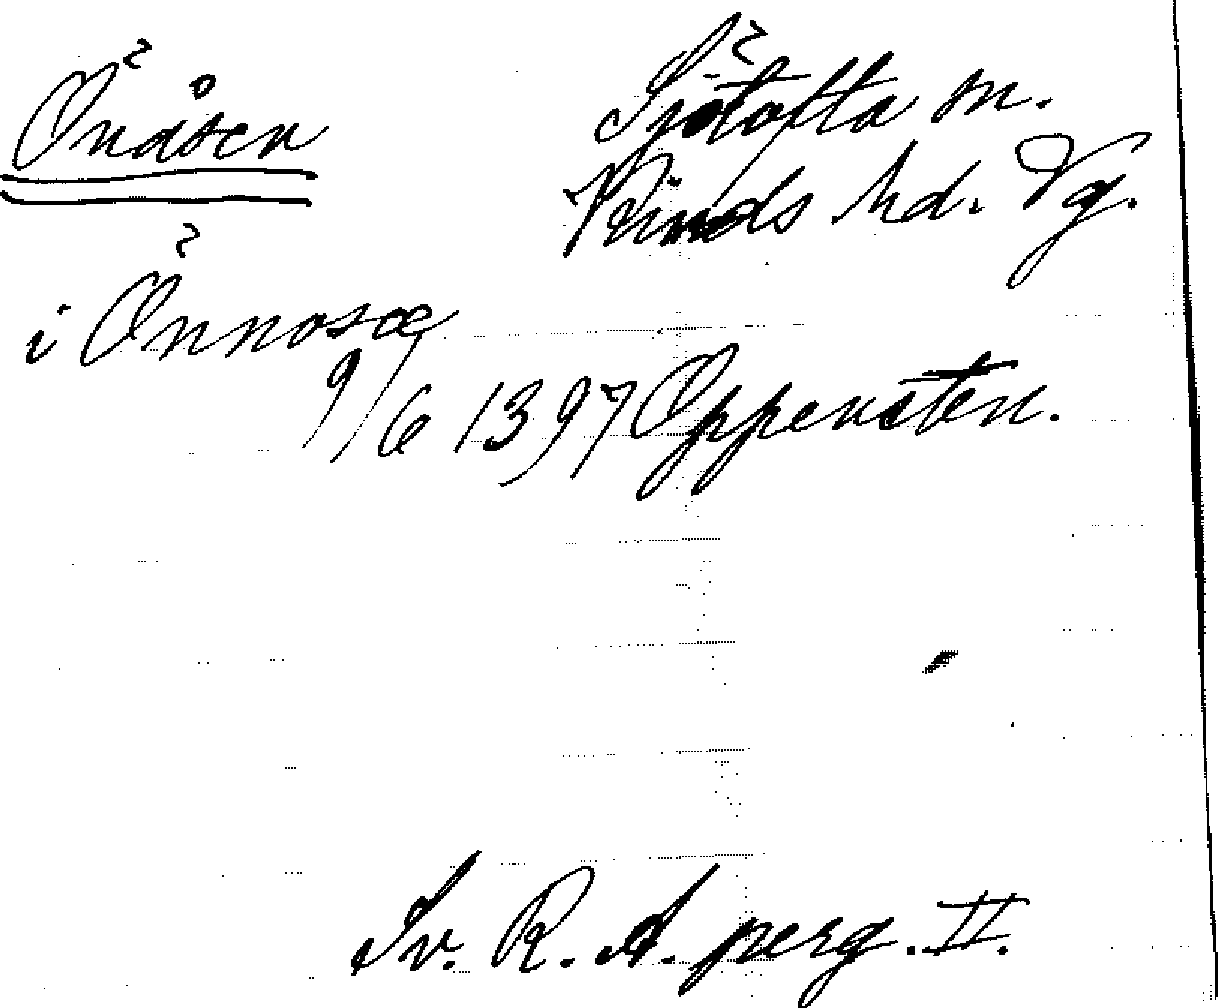 Önåsen
Sjötofta sn.
Kinds hd. Vg.
i Önnosæ
9/6 1397 Öppensten.
Sv. R. A. perg. II.